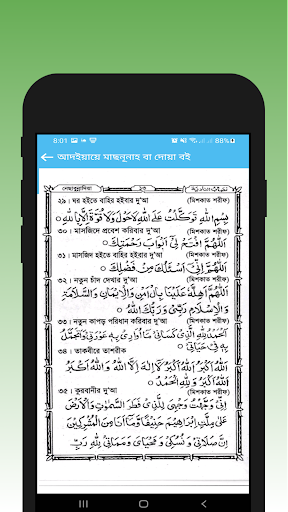 8:01
88%
আদইয়ায়ে মাছনুনাহ বা দোয়া বই
২৯। ঘর হইতে বাহির হইবার দু'আ (মিশকাত শরীফ)
بِسْمِ اللّٰهِ تَوَكَّلْتُ عَلَى اللّٰهِ لَاحَوْلَ وَلَا قُوَّةَ اِلَّا بِاللّٰهِ
৩০। মাসজিদে প্রবেশ করিবার দু'আ (মিশকাত শরীফ)
اَللّٰهُمَّ افْتَحْ لِىْ اَبْوَابَ رَحْمَتِكَ
৩১। মাসজিদ হইতে বাহির হইবার দু'আ (মিশকাত শরীফ)
اَللّٰهُمَّ اِنِّىْ اَسْئَلُكَ مِنْ فَضْلِكَ
৩২। নতুন চাঁদ দেখার দু'আ (মিশকাত শরীফ)
اَللّٰهُمَّ اَهِلَّهٗ عَلَيْنَا بِالْاَمْنِ وَالْاِيْمَانِ وَالسَّلَامَةِ
وَالْاِسْلَامِ رَبِّىْ وَرَبُّكَ اللّٰهُ
৩৩। নতুন কাপড় পরিধান করিবার দু'আ (মিশকাত শরীফ)
اَلْحَمْدُ لِلّٰهِ الَّذِىْ كَسَانِىْ مَا اُوَارِىْ بِهٖ عَوْرَتِىْ وَاَتَجَمَّلُ
بِهٖ فِىْ حَيَاتِىْ
৩৪। তাকবীরে তাশরীক
اَللّٰهُ اَكْبَرُ اَللّٰهُ اَكْبَرُ لَا اِلٰهَ اِلَّا اللّٰهُ وَاللّٰهُ اَكْبَرُ
اَللّٰهُ اَكْبَرُ وَلِلّٰهِ الْحَمْدُ
৩৫। কুরবানীর দু'আ (মিশকাত শরীফ)
اِنِّىْ وَجَّهْتُ وَجْهِىَ لِلَّذِىْ فَطَرَ السَّمٰوٰتِ وَالْاَرْضَ
عَلٰى مِلَّةِ اِبْرَاهِيْمَ حَنِيْفًا وَّمَا اَنَا مِنَ الْمُشْرِكِيْنَ
اِنَّ صَلَاتِىْ وَنُسُكِىْ وَمَحْيَاىَ وَمَمَاتِىْ لِلّٰهِ رَبِّ